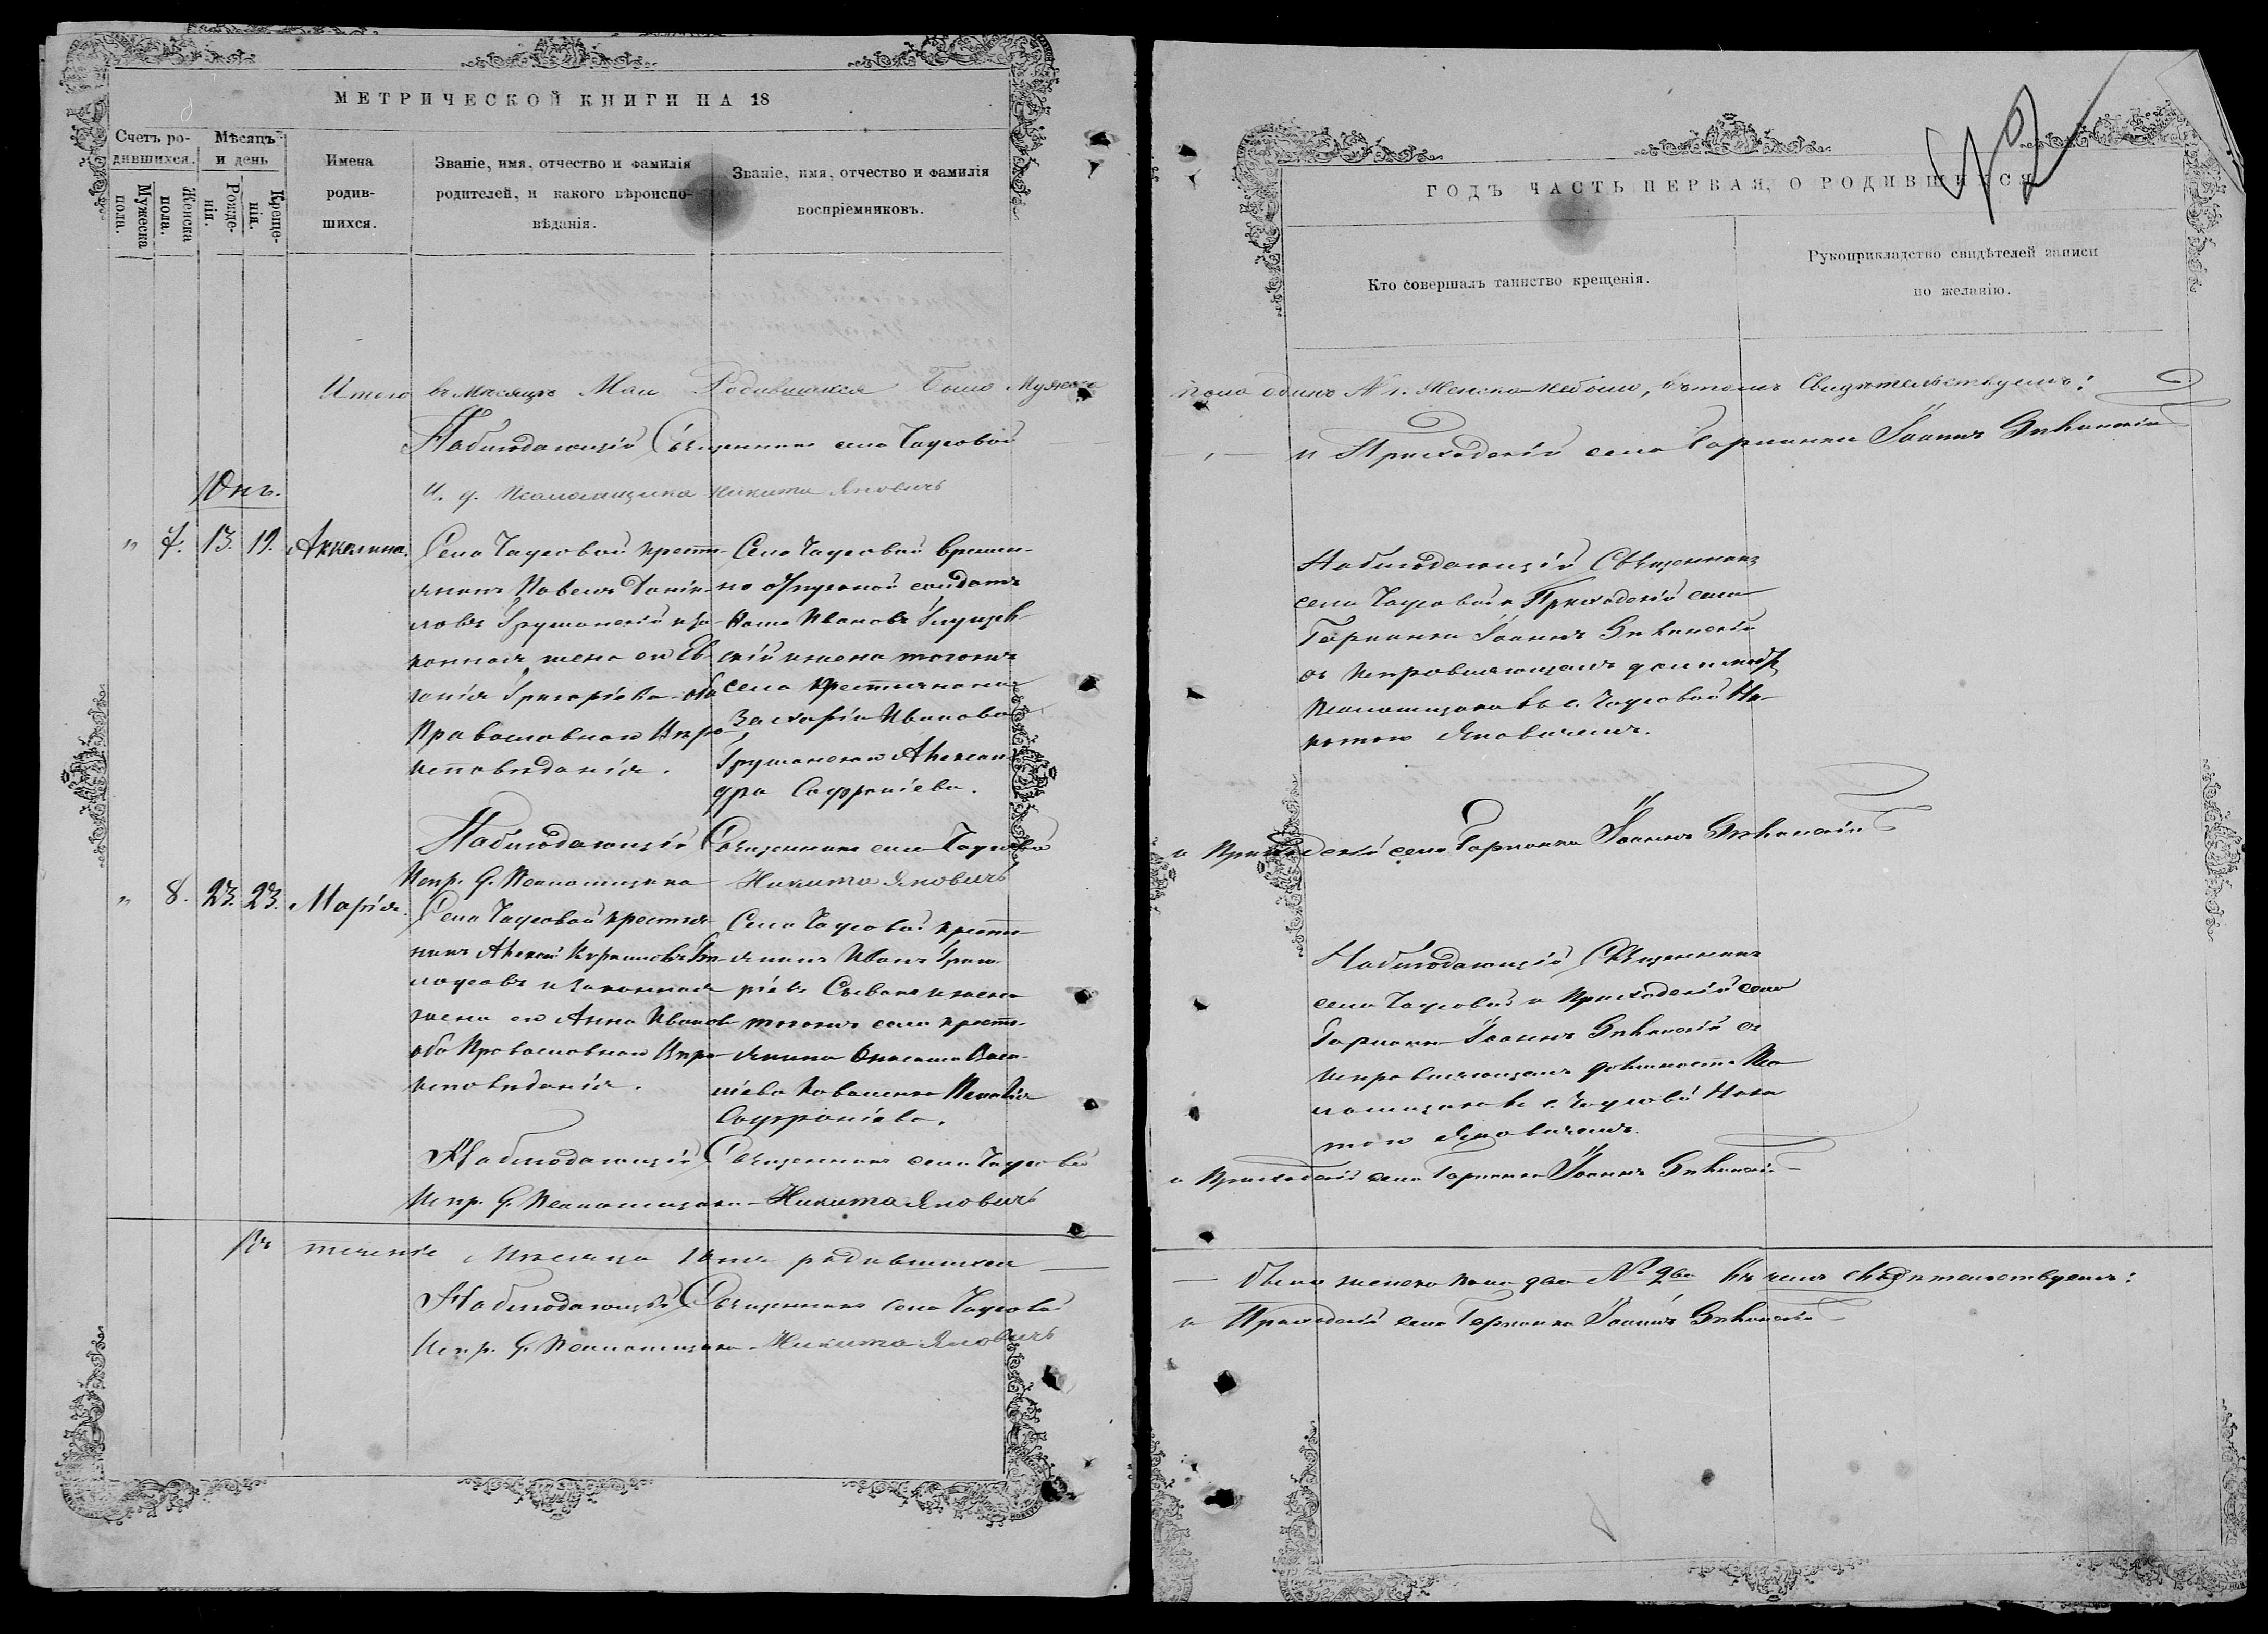 МЕТРИЧЕСКОЙ КНИГИ НА 18
Счетъ ро-
дившихся.
Мужеска
пола.
Женска
пола.
Мѣсяцъ
и день
Рожде-
нія.
Креще-
нія.
Имена
родив-
шихся.
Званіе, имя, отчество и фамилія
родителей, и какого вѣроиспо-
вѣданія.
Званіе, имя, отчество и фамилія
воспріемниковъ.
Итого въ мѣсяцѣ Маи Родившихся было Мужеска
Наблюдающій Священникъ села Чаусовой
И. д. Псаломщика Никита Яновичъ
Юнь.
" 7. 13. 19. Акилина.
Села Чаусовой крестъ-
янинъ Павелъ Даніи-
ловъ Грушанскій и за-
конная жена его Ев
генія Григоріева оба
Православнаго Вѣро-
исповѣданія.
Села Чаусовой времен-
но отпускной солдатъ
Иванов
скій и жена тогожъ
села крестьянина
Захарія Иванова
Грушанскаго Алексан
дра Софроніева.
Наблюдающій Священникъ села Чаусовой
Испр. д. Псаломщика Никита Яновичъ
" 8. 23. 23. Марія.
Села Чаусовой крестья
нинъ Алексѣй
и законная
жена его Анна Иванов
оба Православнаго Вѣро
исповѣданія.
Села Чаусовой кресть
янинъ Иванъ Григо
ріевъ и жена
тогожъ села кресть
янина Васи
ліева Коваленка Пелагія
Софроніева.
Наблюдающій Священникъ села Чаусовой
Испр. д. Псаломщика Никита Яновичъ
Въ теченіе Мѣсяца Юнія родившихся
Наблюдающій Священникъ села Чаусовой
Испр. д. Псаломщика Никита Яновичъ
ГОДЪ ЧАСТЬ ПЕРВАЯ, О РОДИВШИХСЯ
Кто совершалъ таинство крещенія.
Рукоприкладство свидѣтелей записи
по желанію.
пола одинъ № 1. Женска небыло, въ томъ Свидѣтельствуемъ:
и Приходскій села Іоаннъ
Наблюдающій Священникъ
села Чаусовой и Приходскій села
Іоаннъ
съ исправляющимъ должность
Псаломщика въ с. Чаусовой Ни-
китою Яновичемъ.
и Приходскій села Іоаннъ
Наблюдающій Священникъ
села Чаусовой и Приходскій села
Іоаннъ съ
исправляющимъ должность Пса
ломщика въ с. Чаусовой Ники
тою Яновичемъ.
и Приходскій села Іоаннъ
было женска пола два № 2ва въ чемъ свидѣтельствуемъ:
и Приходскій села Іоаннъ